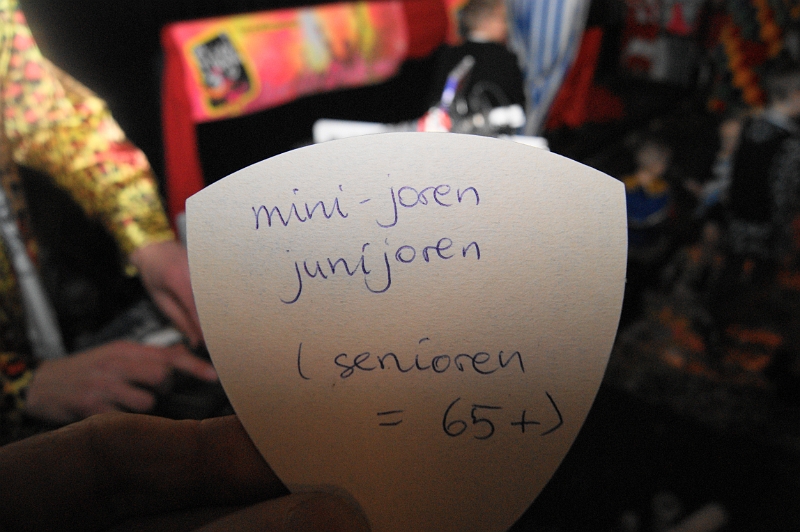 mini-joren
junijoren
( senioren
= 65+)